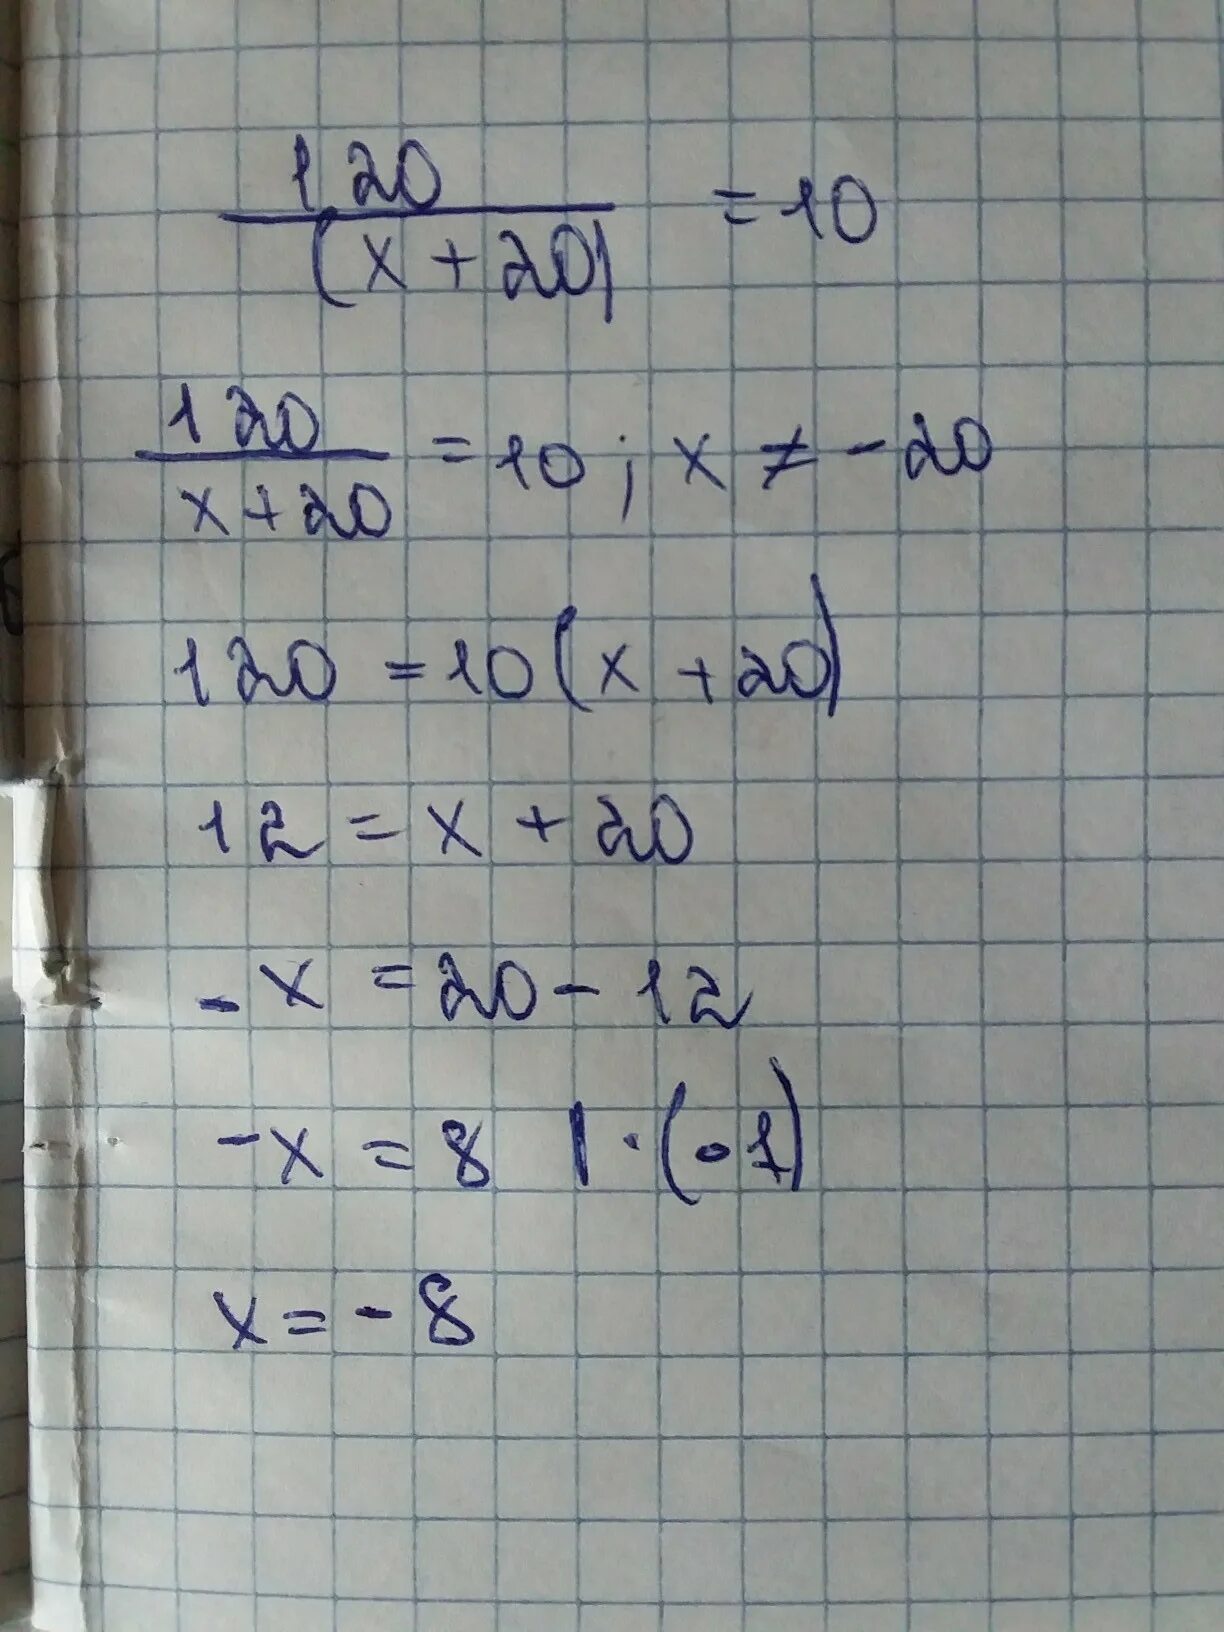 120
(x+20) = 10
120
x+20 = 10 ; x ≠ -20
120 = 10(x+20)
12 = x + 20
-x = 20 - 12
-x = 8 | · (-1)
x = -8